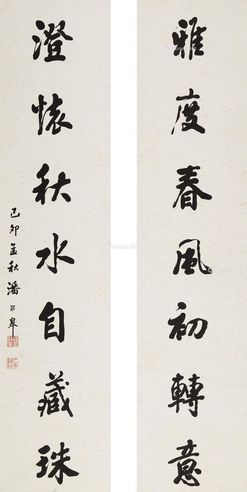 雅度春風初轉蕙
澄懷秋水自藏珠
己卯孟秋潘齡皋